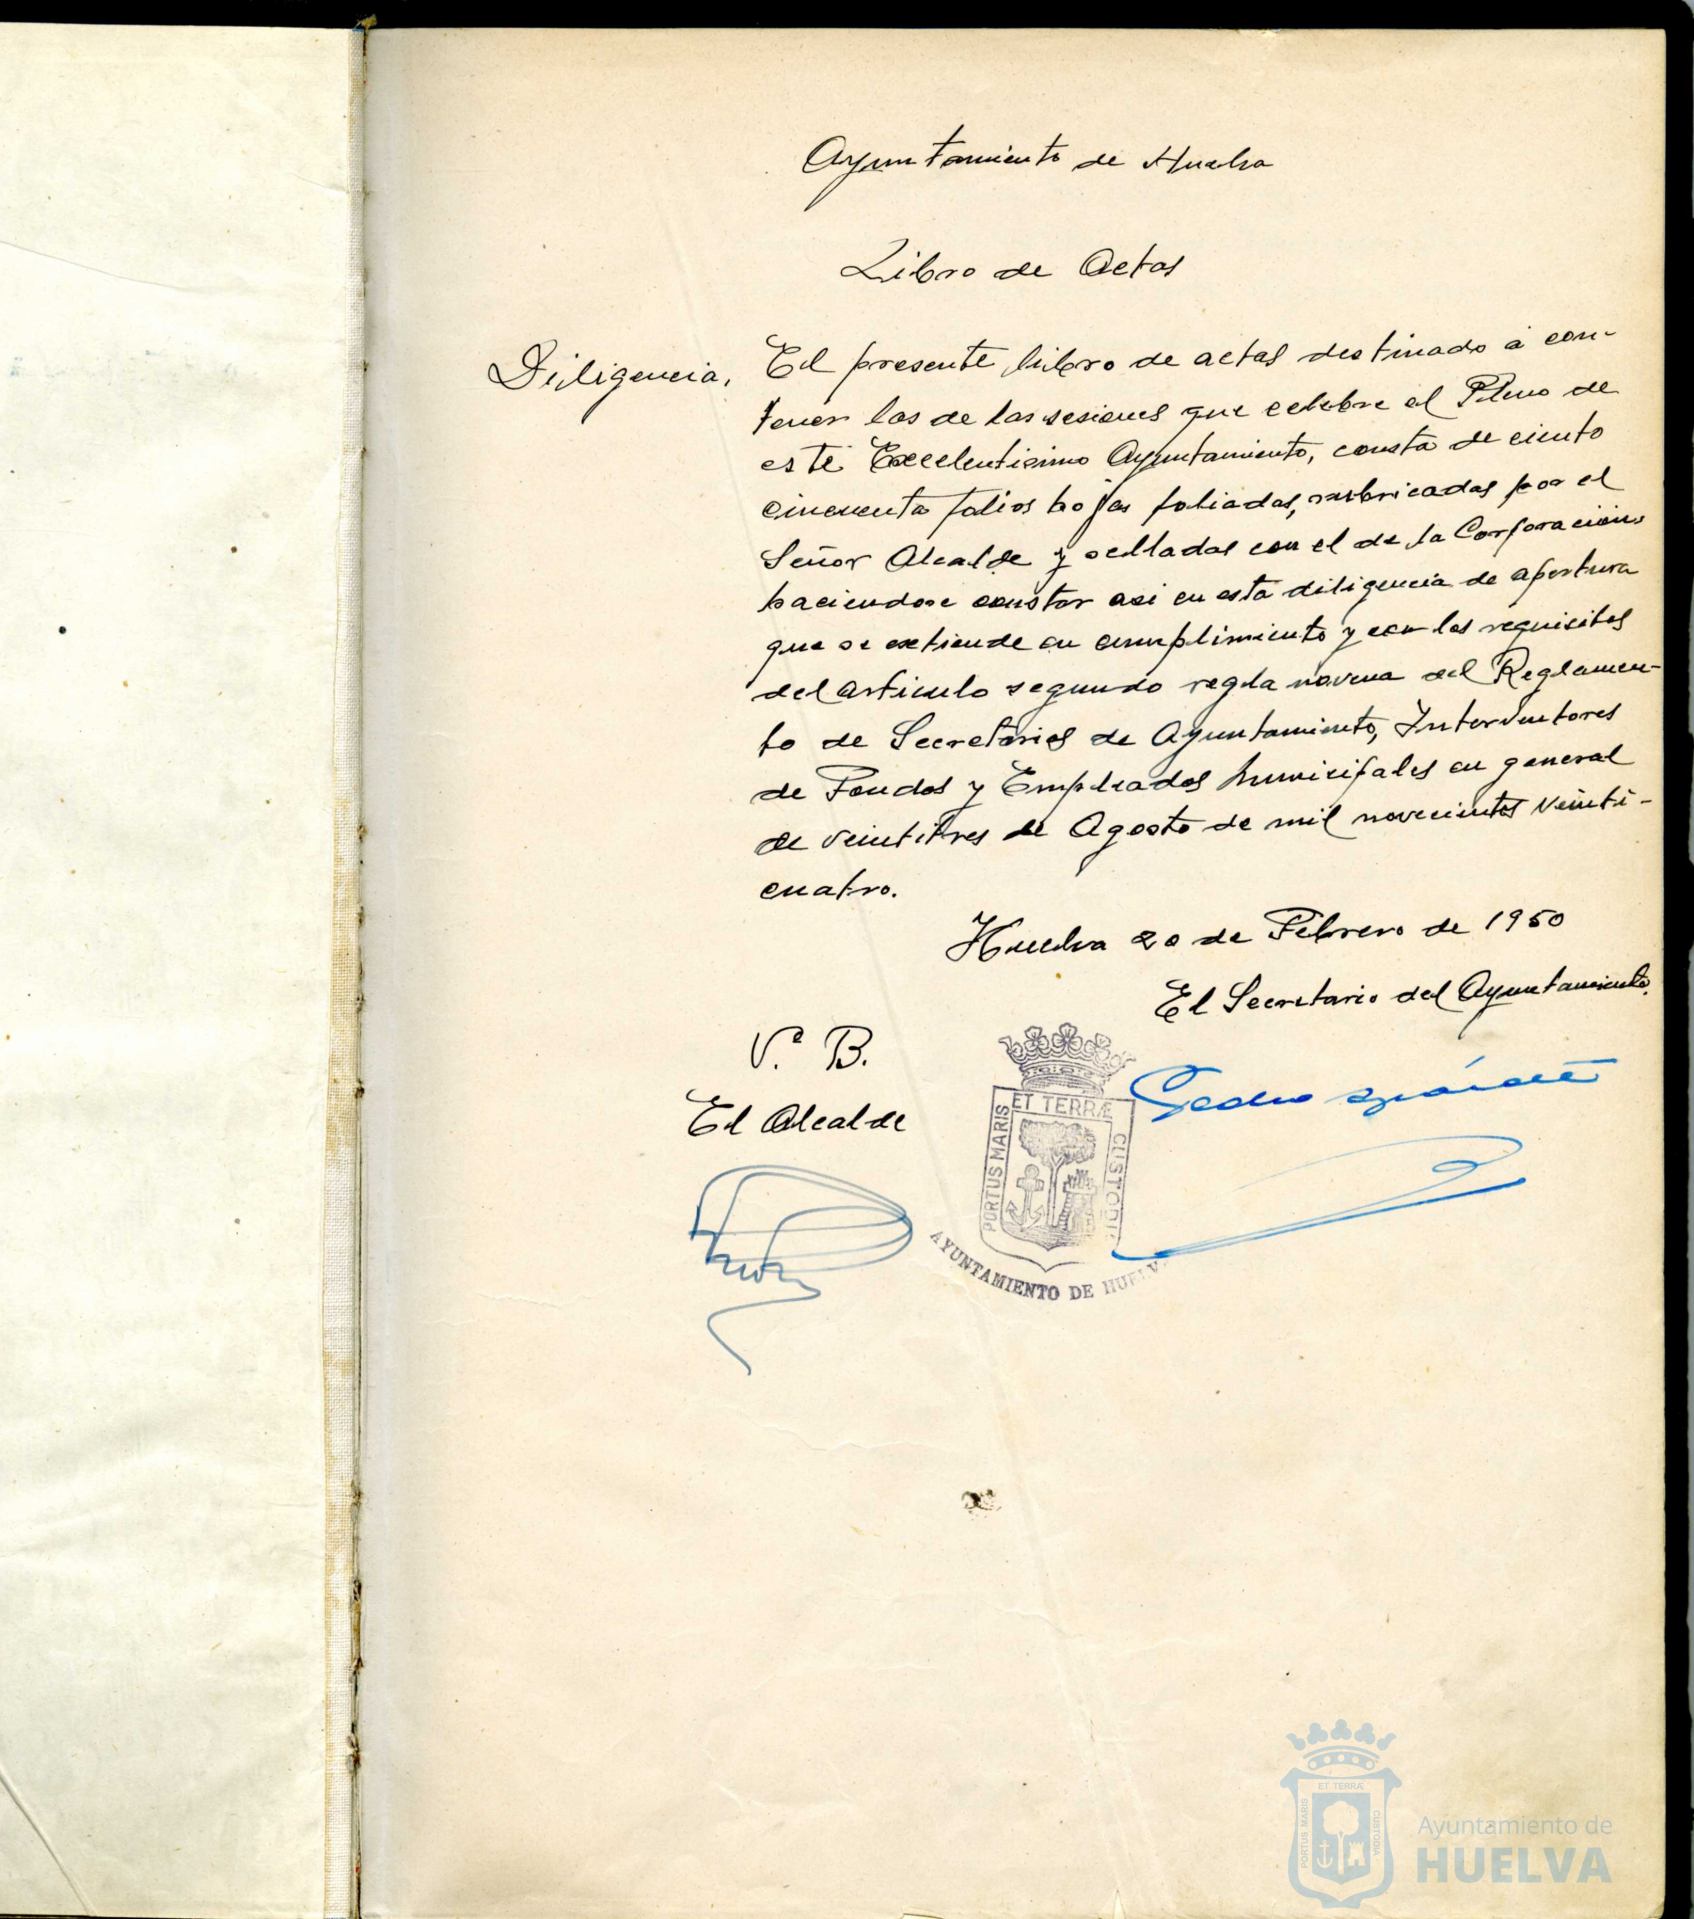 Ayuntamiento de Huelva
Libro de Actas
Diligencia.
El presente libro de actas destinado á con-
tener las de las sesiones que celebre el Pleno de
este Excelentisimo Ayuntamiento, consta de ciento
cincuenta folios hojas foliadas, rubricadas por el
Señor Alcalde y selladas con el de la Corporación
haciendose constar asi en esta diligencia de apertura
que se extiende en cumplimiento y con los requisitos
del artículo segundo regla novena del Reglamen-
to de Secretarios de Ayuntamiento, Interventores
de Fondos y Empleados Municipales en general
de veintitres de Agosto de mil novecientos veinti-
cuatro.
Huelva 20 de Febrero de 1950
El Secretario del Ayuntamiento.
V.º B.
El Alcalde
Pedro
PORTUS MARIS ET TERRÆ CUSTODIA
AYUNTAMIENTO DE HUELVA
PORTUS MARIS ET TERRÆ CUSTODIA
Ayuntamiento de
HUELVA